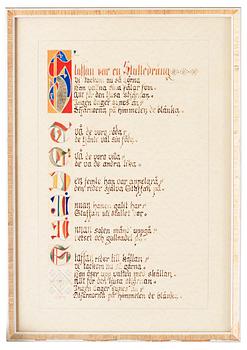 Staffan var en Stalledräng
Vi tackom nu så gärna
Han vattna sina fålar fem
Allt för den ljusa stjärnan
Ingen dager synes än
Stjärnorna på himmelen de blänka.
Två de voro röda
de tjänte väl sin föda
Två de voro vita
de va de andra lika
Den femte han var apnelgrå
den rider själva Staffan på
Innan hanen galit har
Staffan uti stallet var
Innan solen månd' uppgå
betsel och gullsadel på
Staffan rider till källan
Vi tackom nu så gärna
Han öser upp vatten med skållan
Allt för den ljusa stjärnan
Ingen dager synes än
Stjärnorna på himmelen de blänka.